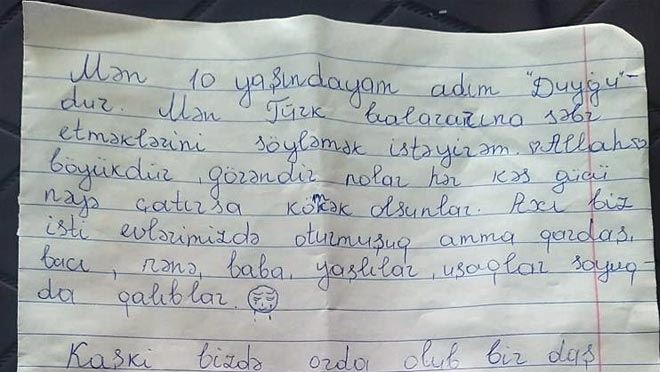 Mən 10 yaşındayam adım "Duyğu"-
dur. Mən Türk balalarına səbr
etməklərini söyləmək istəyirəm. Allah
böyükdür, görəndir nolar hər kəs gücü
nəyə çatırsa kömək olsunlar. Axı biz
isti evlərimizdə oturmuşuq amma qardaş,
bacı, nənə, baba, yaşlılar, uşaqlar soyuq-
da qalıblar.
Kaşki bizdə orda olub bir daş